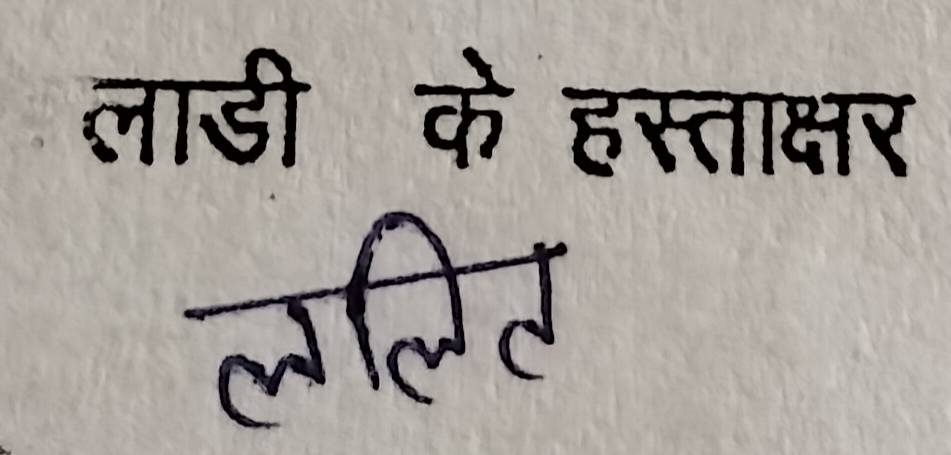 लाडी के हस्ताक्षर
ललित